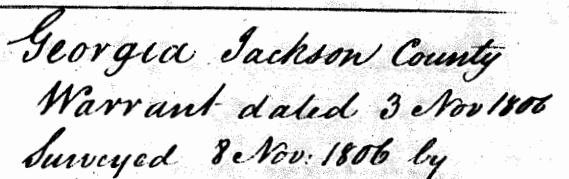 Georgia Jackson County
Warrant dated 3 Nov 1806
Surveyed 8 Nov: 1806 by